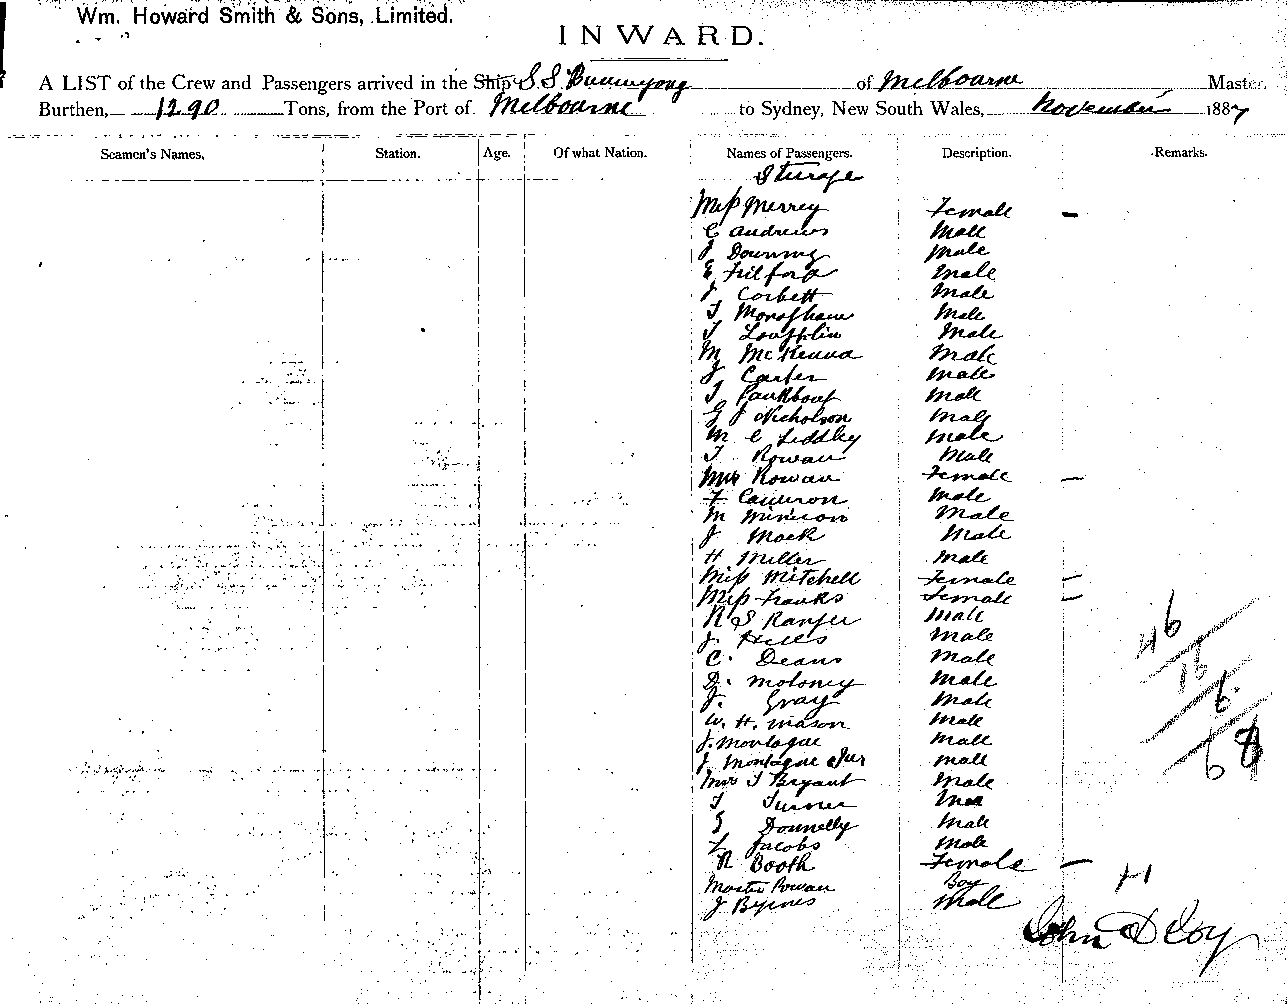 Wm. Howard Smith & Sons, Limited.
INWARD.
A LIST of the Crew and Passengers arrived in the Ship S.S. Buninyong of Melbourne Master
Burthen, 1290 Tons, from the Port of Melbourne to Sydney, New South Wales, November 1887
Seamen's Names. Station. Age. Of what Nation. Names of Passengers. Description. Remarks.
Sturage
Miss Merrey Female –
C Andrews Male
J Downing Male
E Male
J Corbett Male
T Male
T Male
M McKenna Male
J Carter Male
T Male
G J Nicholson Male
M C Liddley Male
T Rowan Male
Mrs Rowan Female –
F Cameron Male
M Male
J Mack Male
H Miller Male
Miss Mitchell Female –
Miss Franks Female –
R S Male
J. Hills Male
C. Deans Male
D. Moloney Male
J. Gray Male
W. H. Mason Male
J. Montague Male
J Montague Jur Male
T Bryant Male
T Turner
E Donnelly Male
L Jacobs Male
R Booth Female –
Master Rowan Boy
J Byrnes Male
46
16
6
68
John